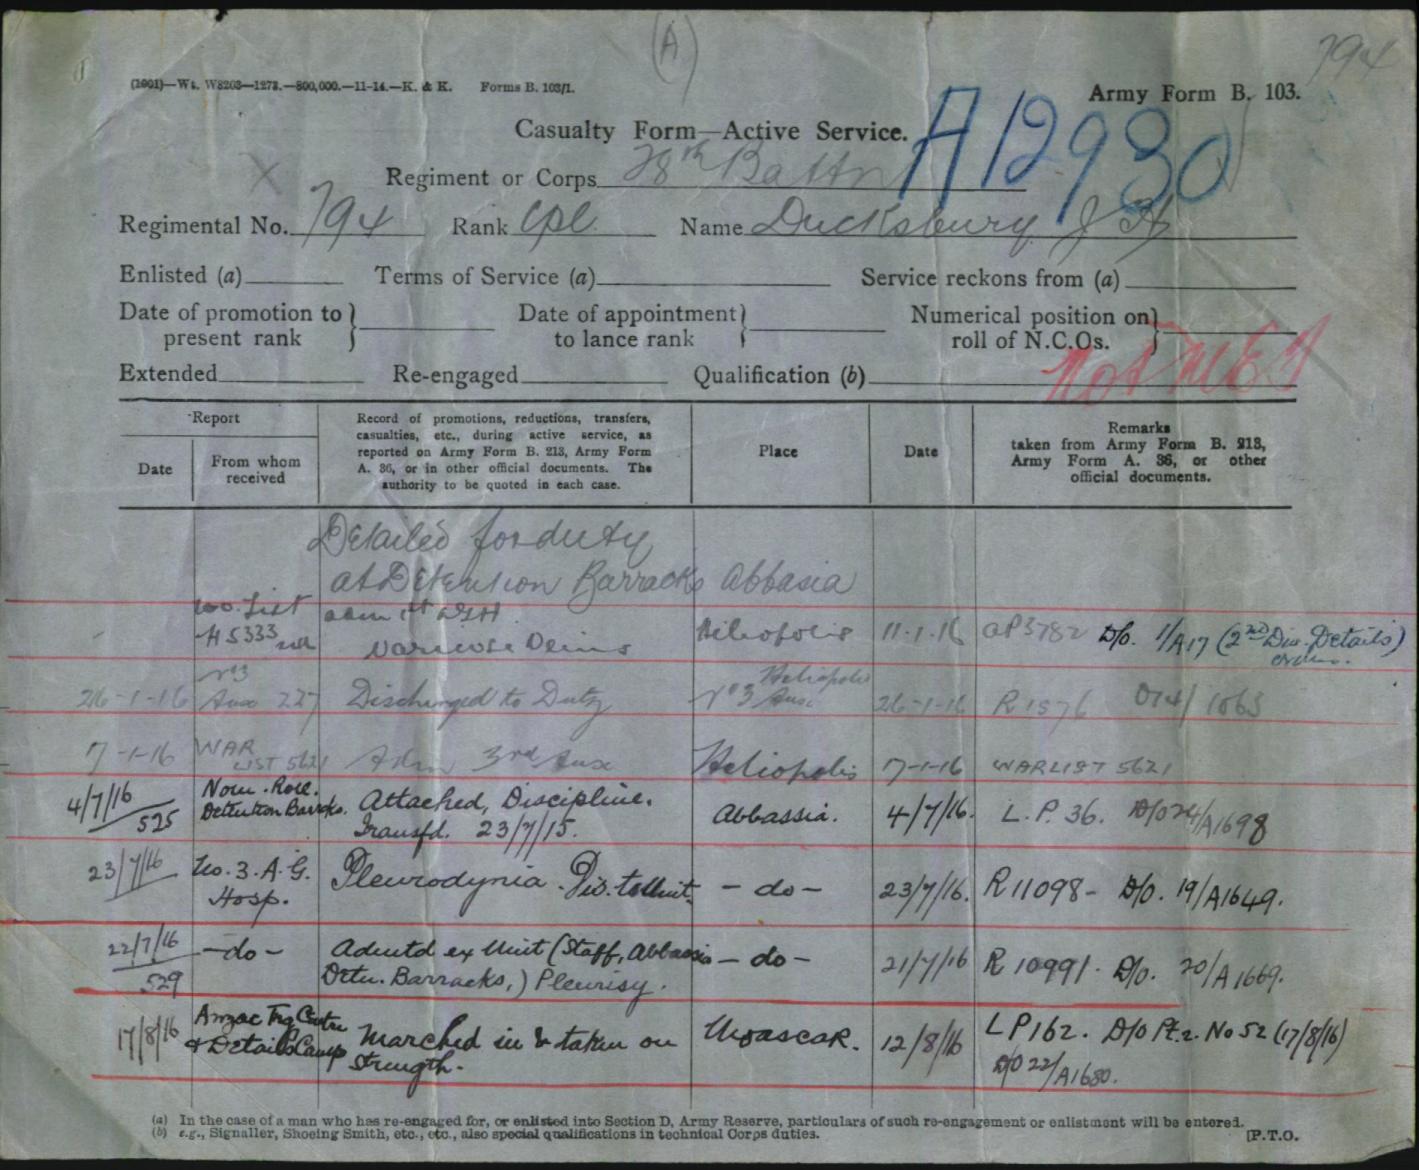 (A)
794
(1901)—Wt. W8203—1273.—800,000.—11-14.—K. & K. Forms B. 103/1.
Army Form B. 103.
Casualty Form—Active Service.
A12980
Regiment or Corps 28th Battn
Regimental No. 794 Rank Cpl. Name Ducksbury J A
Enlisted (a) Terms of Service (a) Service reckons from (a)
Date of promotion to present rank } Date of appointment to lance rank } Numerical position on roll of N.C.Os. }
Extended Re-engaged Qualification (b)
Not MEF
Report
Date
From whom received
Record of promotions, reductions, transfers,
casualties, etc., during active service, as
reported on Army Form B. 213, Army Form
A. 36, or in other official documents. The
authority to be quoted in each case.
Place
Date
Remarks
taken from Army Form B. 213,
Army Form A. 36, or other
official documents.
Detailed for duty
at Detention Barracks Abbasia
List adm 1st AGH
H5333 Varicose Veins Heliopolis 11-1-16 D/o. 1/A17 (2nd Div. Details)
No 3 Heliopolis
26-1-16 Aux 227 Discharged to Duty No 3 Aux. 26-1-16 R1576 1063
7-1-16 WAR LIST 5621 Adm 3rd Aux Heliopolis 7-1-16 WAR LIST 5621
4/7/16 Nom. Roll. Attached, Discipline. Abbassia. 4/7/16. L.P. 36. D/o 24/A1698
525 Detention Barracks. Transfd. 23/7/15.
23/7/16 No. 3. A. G. Pleurodynia. Dis. to Unit. — do — 23/7/16. R11098 - D/o. 19/A1649.
Hosp.
22/7/16 — do — Admtd ex Unit (Staff, Abbassia — do — 21/7/16 R 10991. D/o. 20/A1669.
529 Detn. Barracks,) Pleurisy.
17/8/16 Anzac Trg Centre Marched in & taken on Moascar. 12/8/16 LP162. D/o Pt. 2. No 52 (17/8/16)
& Details Camp Strength. D/o 22/A1680.
(a) In the case of a man who has re-engaged for, or enlisted into Section D, Army Reserve, particulars of such re-engagement or enlistment will be entered.
(b) e.g., Signaller, Shoeing Smith, etc., etc., also special qualifications in technical Corps duties.
[P.T.O.